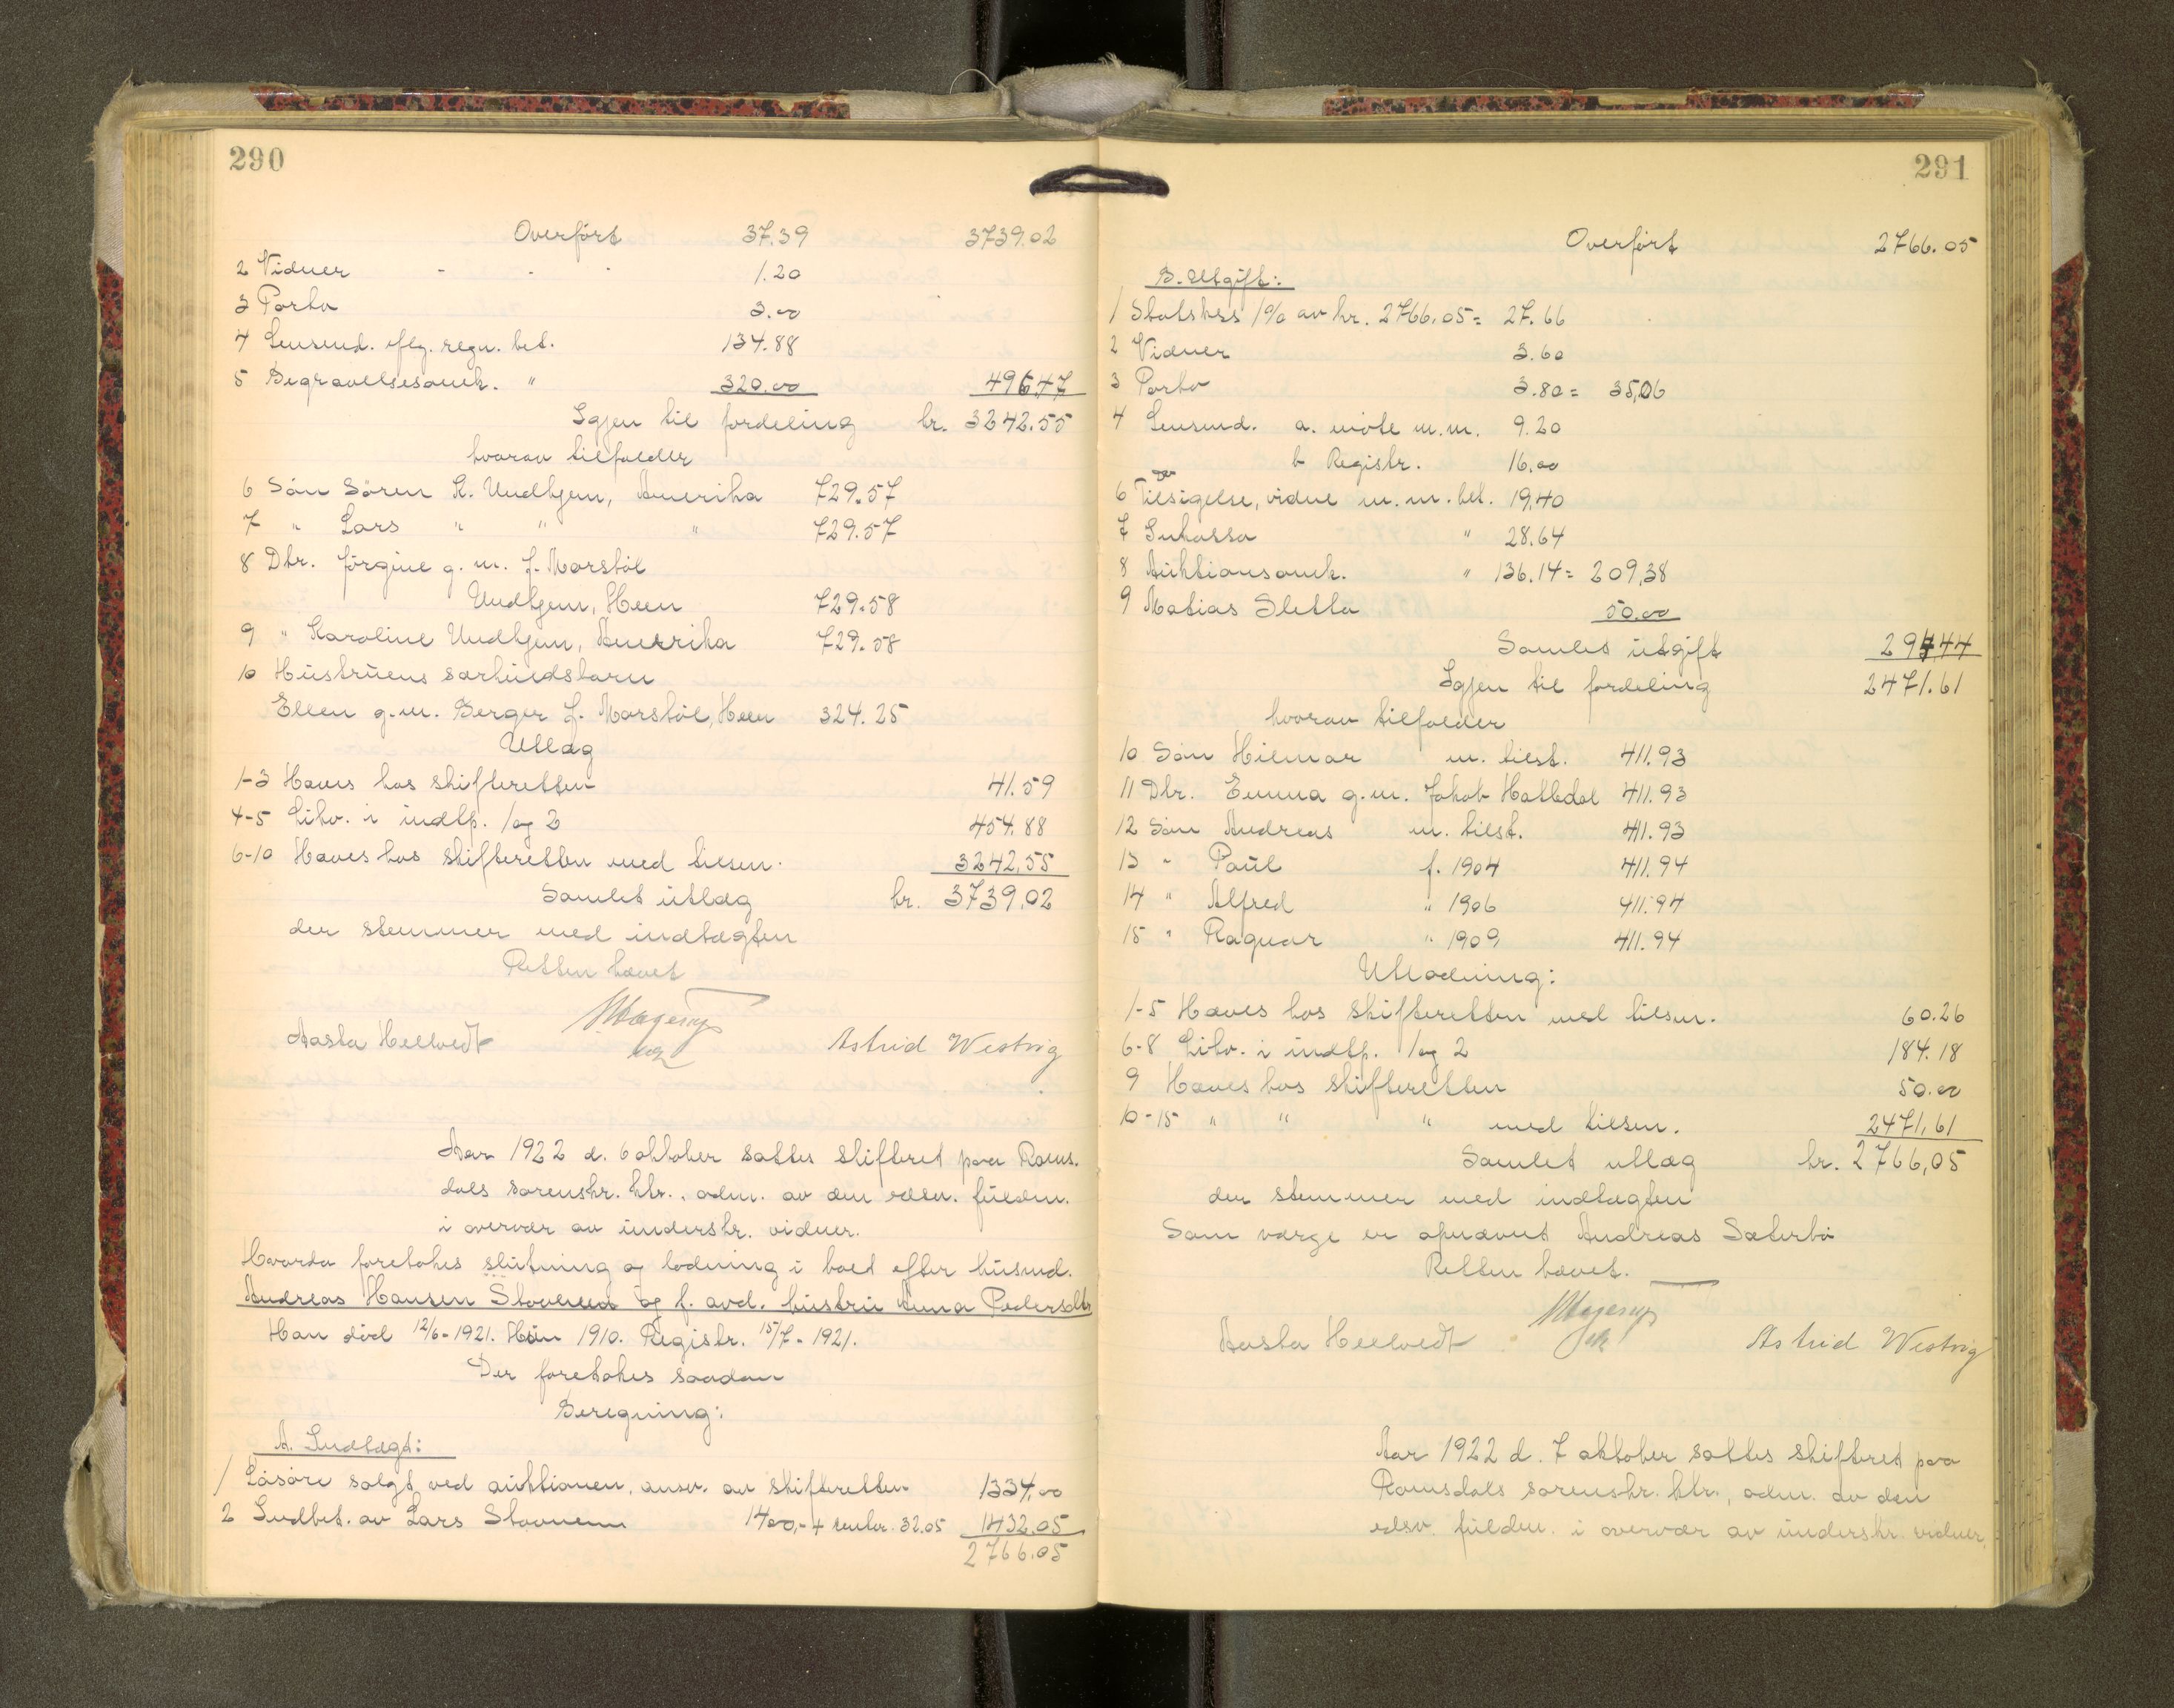 290
Overført 37.39 3739.02
2 Vidner - - - 1.20
3 Porto 3.00
4 Lensmd. eflg. regn. bet. 134.88
5 Begravelsesomk. " 320.00 496.47
Igjen til fordeling kr. 3242.55
hvorav tilfalder
6 Søn Sören K. Undhjem, Amerika 729.57
7 " Lars " " " 729.57
8 Dtr. Jörgine g. m. J. Morstöl
Undhjem, Heen 729.58
9 " Karoline Undhjem, Amerika 729.58
10 Hustruens særkuldsbarn
Ellen g.m. Berger J. Morstöl, Heen 324.25
Utlæg
1-3 Hæves hos skifteretten 41.59
4-5 Likv. i indtp. 1 og 2 454.88
6-10 Hæves hos skifteretten med tilsm. 3242,55
Samlet utlæg kr. 3739,02
der stemmer med indtægten
Retten hævet
Aasta Hellvedt Hagerup Astrid Westvig
Aar 1922 d. 6 oktober sattes skifteret paa Roms.
dals sorenskr. ktr., adm. av den edsv. fuldm.
i overvær av underskr. vidner.
Hvorda foretokes slutning og lodning i boet efter husmd.
Andreas Hansen Stovnem og f. avd. hustru Anna Pedersdtr
Han död 12/6-1921. Hun 1910. Registr. 15/7-1921.
Der foretokes saadan
Beregning:
A. Indtægt:
1 Lösöre solgt ved auktionen, ansv. av skifteretten 1334.00
2 Indbet. av Lars Stovnem 1400,- + renter 32.05 1432.05
2766.05
291
Overfört 2766.05
B. Utgift:
1 Statskss 1% av kr. 2766.05= 27.66
2 Vidner 3.60
3 Porto 3.80= 35,06
4 Lensmd. a. möte m.m. 9.20
b Registr. 16.00
6 Tilsigelse, vidne m. m. bet. 19,40
7 Inkasso " 28.64
8 Auktionsomk. " 136.14= 209,38
9 Matias Sletta 50.00
Samlet utgift 294.44
Igjen til fordeling 2471.61
hvorav tilfalder
10 Sön Hilmar m. tilst. 411.93
11 Dtr. Emma g.m. Jakob Hatledal 411.93
12 Sön Andreas m. tilst. 411.93
13 " Paul f. 1904 411.94
14 " Alfred " 1906 411.94
15 " Ragnar " 1909 411.94
Utlodning:
1-5 Hæves hos skifteretten med tilsm. 60.26
6-8 Likv. i indtp. 1 og 2 184.18
9 Hæves hos skifteretten 50.00
10-15 " " " med tilsm. 2471,61
Samlet utlæg kr. 2766,05
der stemmer med indtægten
Som værge er opnævnt Andreas Sæterbö
Retten hævet.
Aasta Hellvedt Hagerup Astrid Westvig
Aar 1922 d. 7 oktober sattes skifteret paa
Romsdals sorenskr. ktr., adm. av den
edsv. fuldm. i overvær av underskr. vidner.